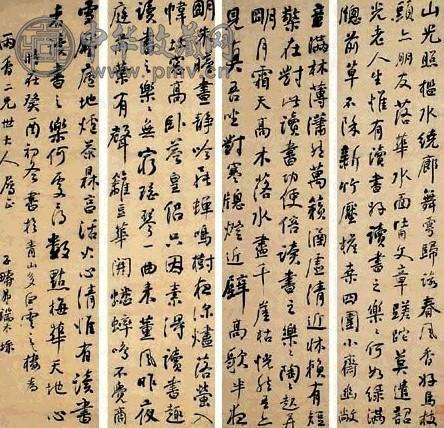 山光照檻水繞廊舞雩歸詠春風香好鳥枝
頭亦朋友落華水面皆文章蹉跎莫遣韶
光老人生惟有讀書好讀書之樂樂何如綠滿
牕前草不除新竹壓檐桑四圍小齋幽敞
意滿林薄蕭然萬籟涵虛清近牀賴有短
檠在對此讀書功更倍讀書之樂樂陶陶起弄
明月霜天高木落水盡千崖枯恍然吾亦
見真吾坐對寒牕燈近壁高歌半夜
明朱曦晝靜吟罷蟬鳴樹夜深燼落螢入
幃北窗高臥羲皇侶只因素得讀書趣
讀書之樂樂無窮瑤琴一曲來薰風昨夜
庭華有聲籬豆華開蟋蟀鳴不覺商
雪壓廬地爐茶鼎烹活火心清惟有讀書
者讀書之樂何處尋數點梅華天地心
兩香二兄世大人屬正
時在癸酉初冬書於青山多白雲之樓
中华收藏网
www.pmv.cn